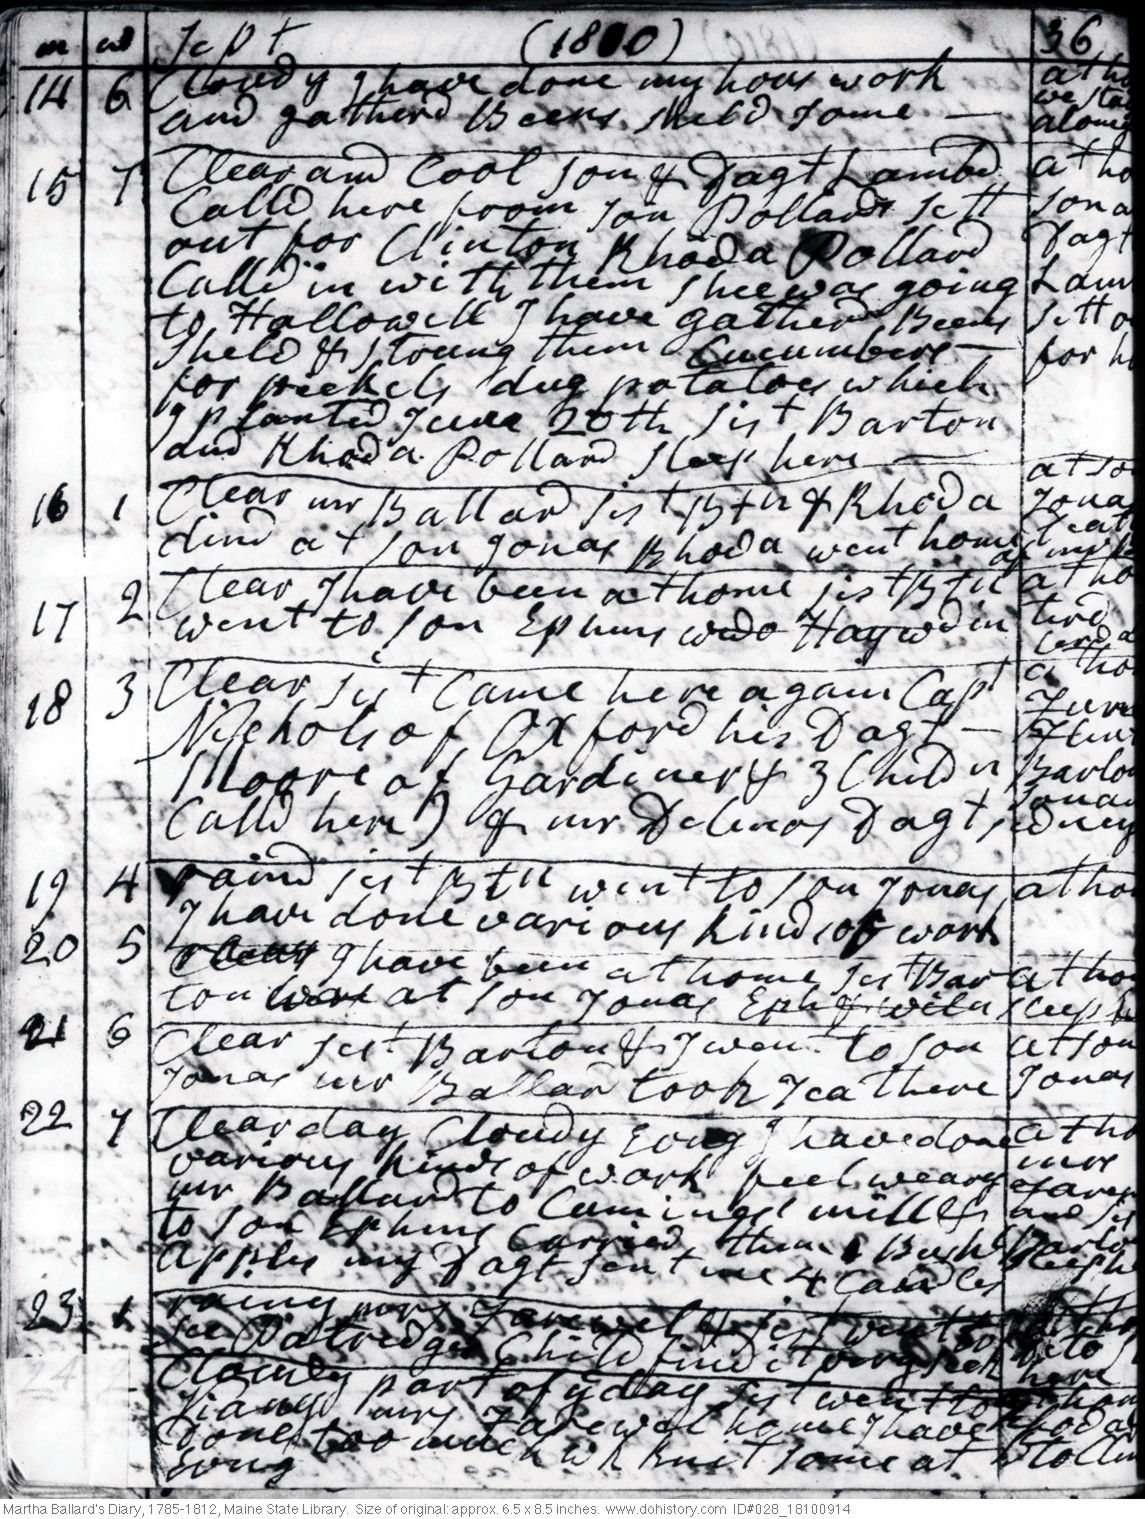 m wd Sept (1810) 36
14 6 Cloudy I have done my hous work
and gatherd Beens sheld some —
at ho
we sta
alone
15 7 Clear and Cool son & Dagt Lambd
Calld here from son Pollards sett
out for Clinton Rhoda Pollard
Calld in with them shee was going
to Hallowell I have gatherd Beens
sheld & stroung them Cucumbers —
for peekels dug potatoes which
I planted June 20th sist Barton
and Rhoda Pollard sleep here —
at ho
son a
Dagt
Lam
sett o
for h
16 1 Clear mr Ballard sist Btn & Rhoda
dind at son Jonas Rhoda went home
at so
Jonas
17 2 Clear I have been at home sist Btn
went to son Ephms wido Haywd in
at ho
tird
18 3 Clear sist Came here again Capt
Nichols of Oxford his Dagt —
Moore of Gardiner & 3 Childn
Calld here) & mr Delenos Dagt
at ho
Barton
Jonas
sidney
19 4 raind sist Btn went to son Jonas
I have done various kinds of work
at ho
20 5 Clear I have been at home sist Bar
ton at son Jonas Eph & wiln
at ho
sleep h
21 6 Clear sist Barton & I went to son
Jonas mr Ballard took Tea there
at son
Jonas
22 7 Clear day Cloudy Evng I have done
various kinds of work feel weary
mr Ballard to Cumings mill &
to son Ephms Carried them 1 Bushl
apples my Dagt sent me 4 Candles
at ho
mrs
Farew
and sis
Barto
sleep he
23 1 rainy mrs Farewell & sist went to
see Patredges Child find it very sick
at ho
here
24 2 Cloudy part of ye day sist went to
mrs Farewel home I have
done too much wk knit some at
Evng
at hom
Martha Ballard's Diary, 1785-1812, Maine State Library. Size of original: approx. 6.5 x 8.5 inches. www.dohistory.com ID#028_18100914